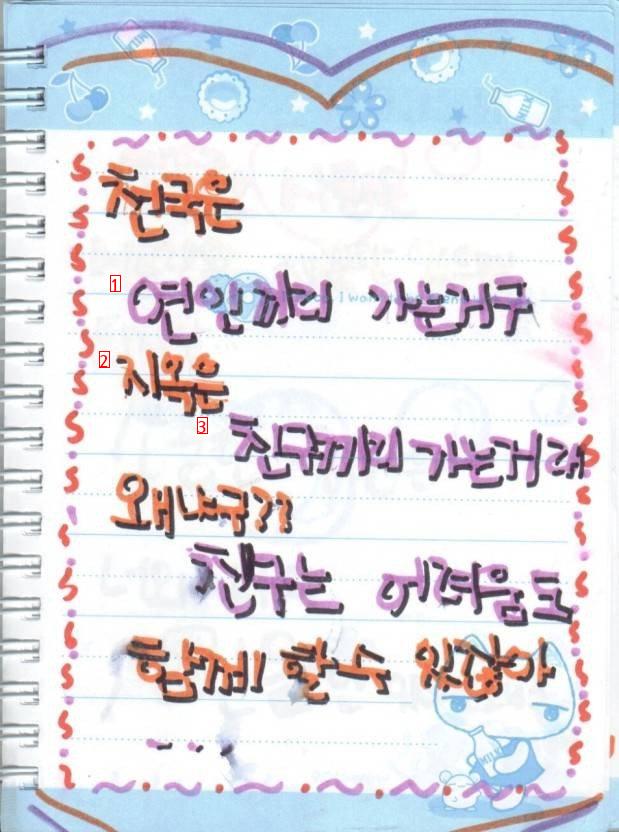 천국은
1 연인끼리 가는거구
2 지옥은
3 친구끼리 가는거래
왜냐구??
친구는 어려움도
함께 할 수 있잖아
....
MILK
MILK
MILK